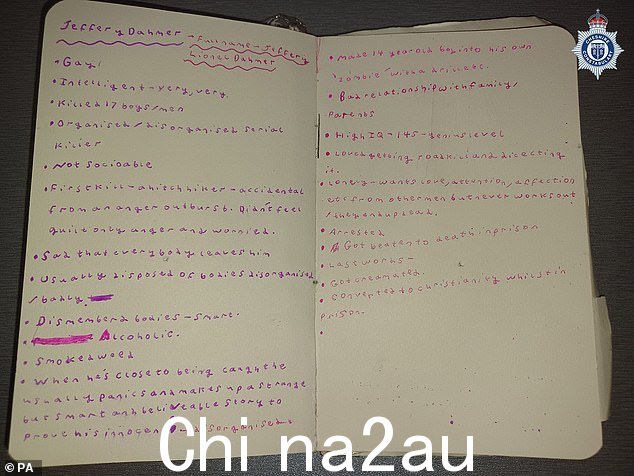 Jeffery Dahmer
- Full name - Jeffery
Lionel Dahmer
• Gay!
• Intelligent - very, very,
• Killed 17 boys/men
• Organised/disorganised serial
killer
• Not sociable
• First kill - a hitch hiker - accidental
from an anger outburst. Didn't feel
guilt only anger and worried.
• Sad that everybody leaves him
• Usually disposed of bodies disorganised
/badly
• Dismemberd bodies - smart.
• Alcoholic.
• Smoked weed
• When he's close to being caught he
usually panics and makes up a strange
but smart and believeable story to
prove his innocen - disorganised
• Made 14 year old boy into his own
"zombie" with a drill etc.
• Bad relationship with family/
Parents
• High IQ - 145 - genius level
• Loved getting roadkill and dicecting
it.
• Lonely - wants love, attention, affection
etc from other men but never works out
/they end up dead.
• Arrested
• Got beaten to death in prison
• Last words -
• Got creamated.
• Converted to christianity whilst in
prison.
•
CHESHIRE CONSTABULARY
© PA
Chi na2au